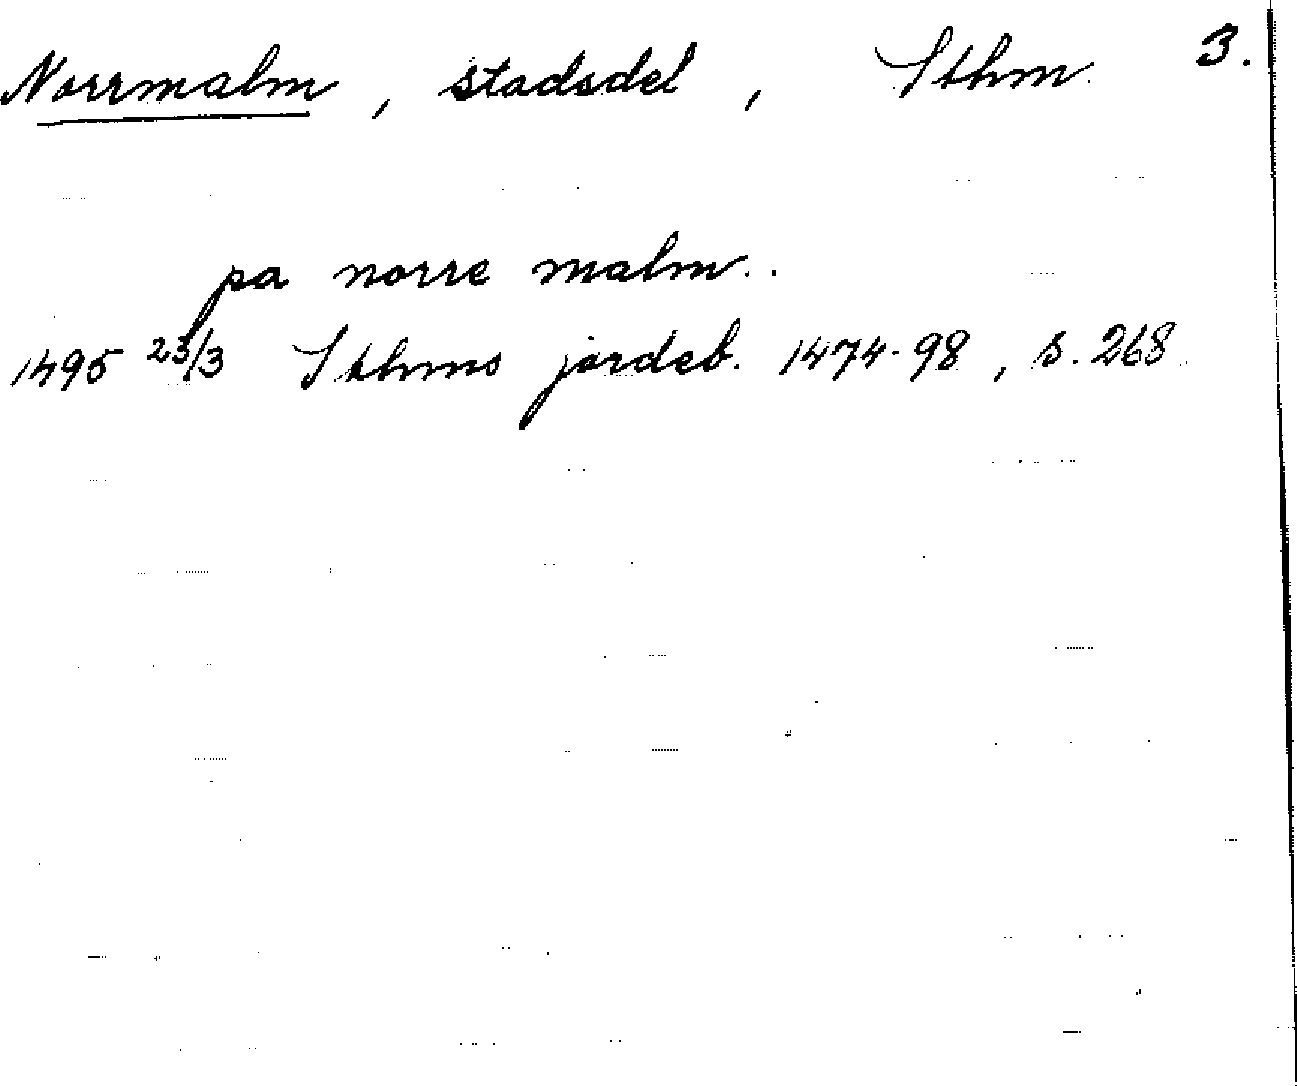 Norrmalm, stadsdel, Sthm. 3.
pa norre malm..
1495 23/3 Sthms jordeb. 1474-98, s. 268.